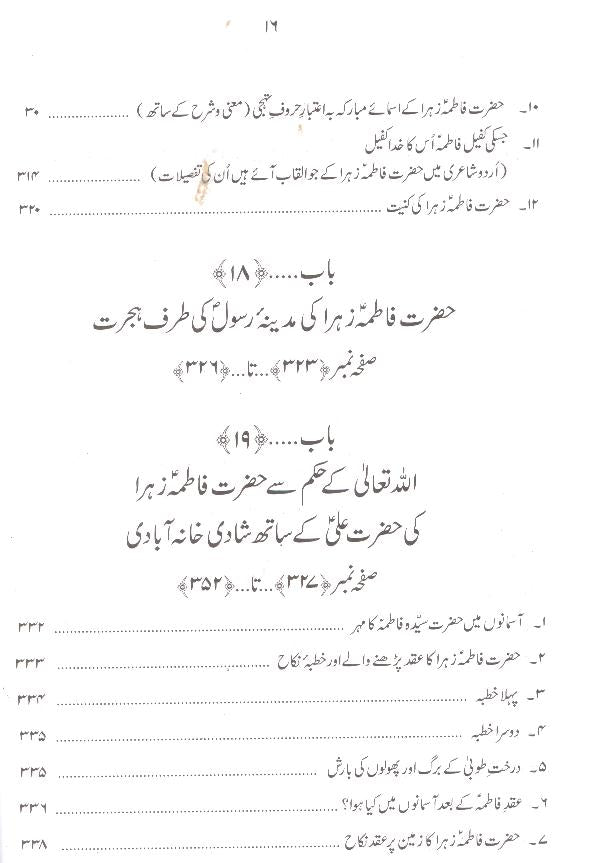 ۱۶
۱۰۔ حضرت فاطمہؑ زہرا کے اسمائے مبارکہ بہ اعتبارِ حروفِ تہجی (معنی و شرح کے ساتھ) ..................... ۳۰
۱۱۔ جسکی کفیل فاطمہؑ اُس کا خدا کفیل
(اُردو شاعری میں حضرت فاطمہؑ زہرا کے جو القاب آئے ہیں اُن کی تفصیلات) ..................... ۳۱۴
۱۲۔ حضرت فاطمہؑ زہرا کی کنیت ..................... ۳۲۰
باب.....﴿۱۸﴾
حضرت فاطمہؑ زہرا کی مدینۂ رسولؐ کی طرف ہجرت
صفحہ نمبر ﴿۳۲۳﴾...تا...﴿۳۲۶﴾
باب.....﴿۱۹﴾
اللہ تعالیٰ کے حکم سے حضرت فاطمہؑ زہرا
کی حضرت علیؑ کے ساتھ شادی خانہ آبادی
صفحہ نمبر ﴿۳۲۷﴾...تا...﴿۳۵۲﴾
۱۔ آسمانوں میں حضرت سیّدہ فاطمہؑ کا مہر ..................... ۳۳۲
۲۔ حضرت فاطمہؑ زہرا کا عقد پڑھنے والے اور خطبۂ نکاح ..................... ۳۳۳
۳۔ پہلا خطبہ ..................... ۳۳۴
۴۔ دوسرا خطبہ ..................... ۳۳۵
۵۔ درختِ طوبیٰ کے برگ اور پھولوں کی بارش ..................... ۳۳۵
۶۔ عقدِ فاطمہؑ کے بعد آسمانوں میں کیا ہوا؟ ..................... ۳۳۶
۷۔ حضرت فاطمہؑ زہرا کا زمین پر عقدِ نکاح ..................... ۳۳۸